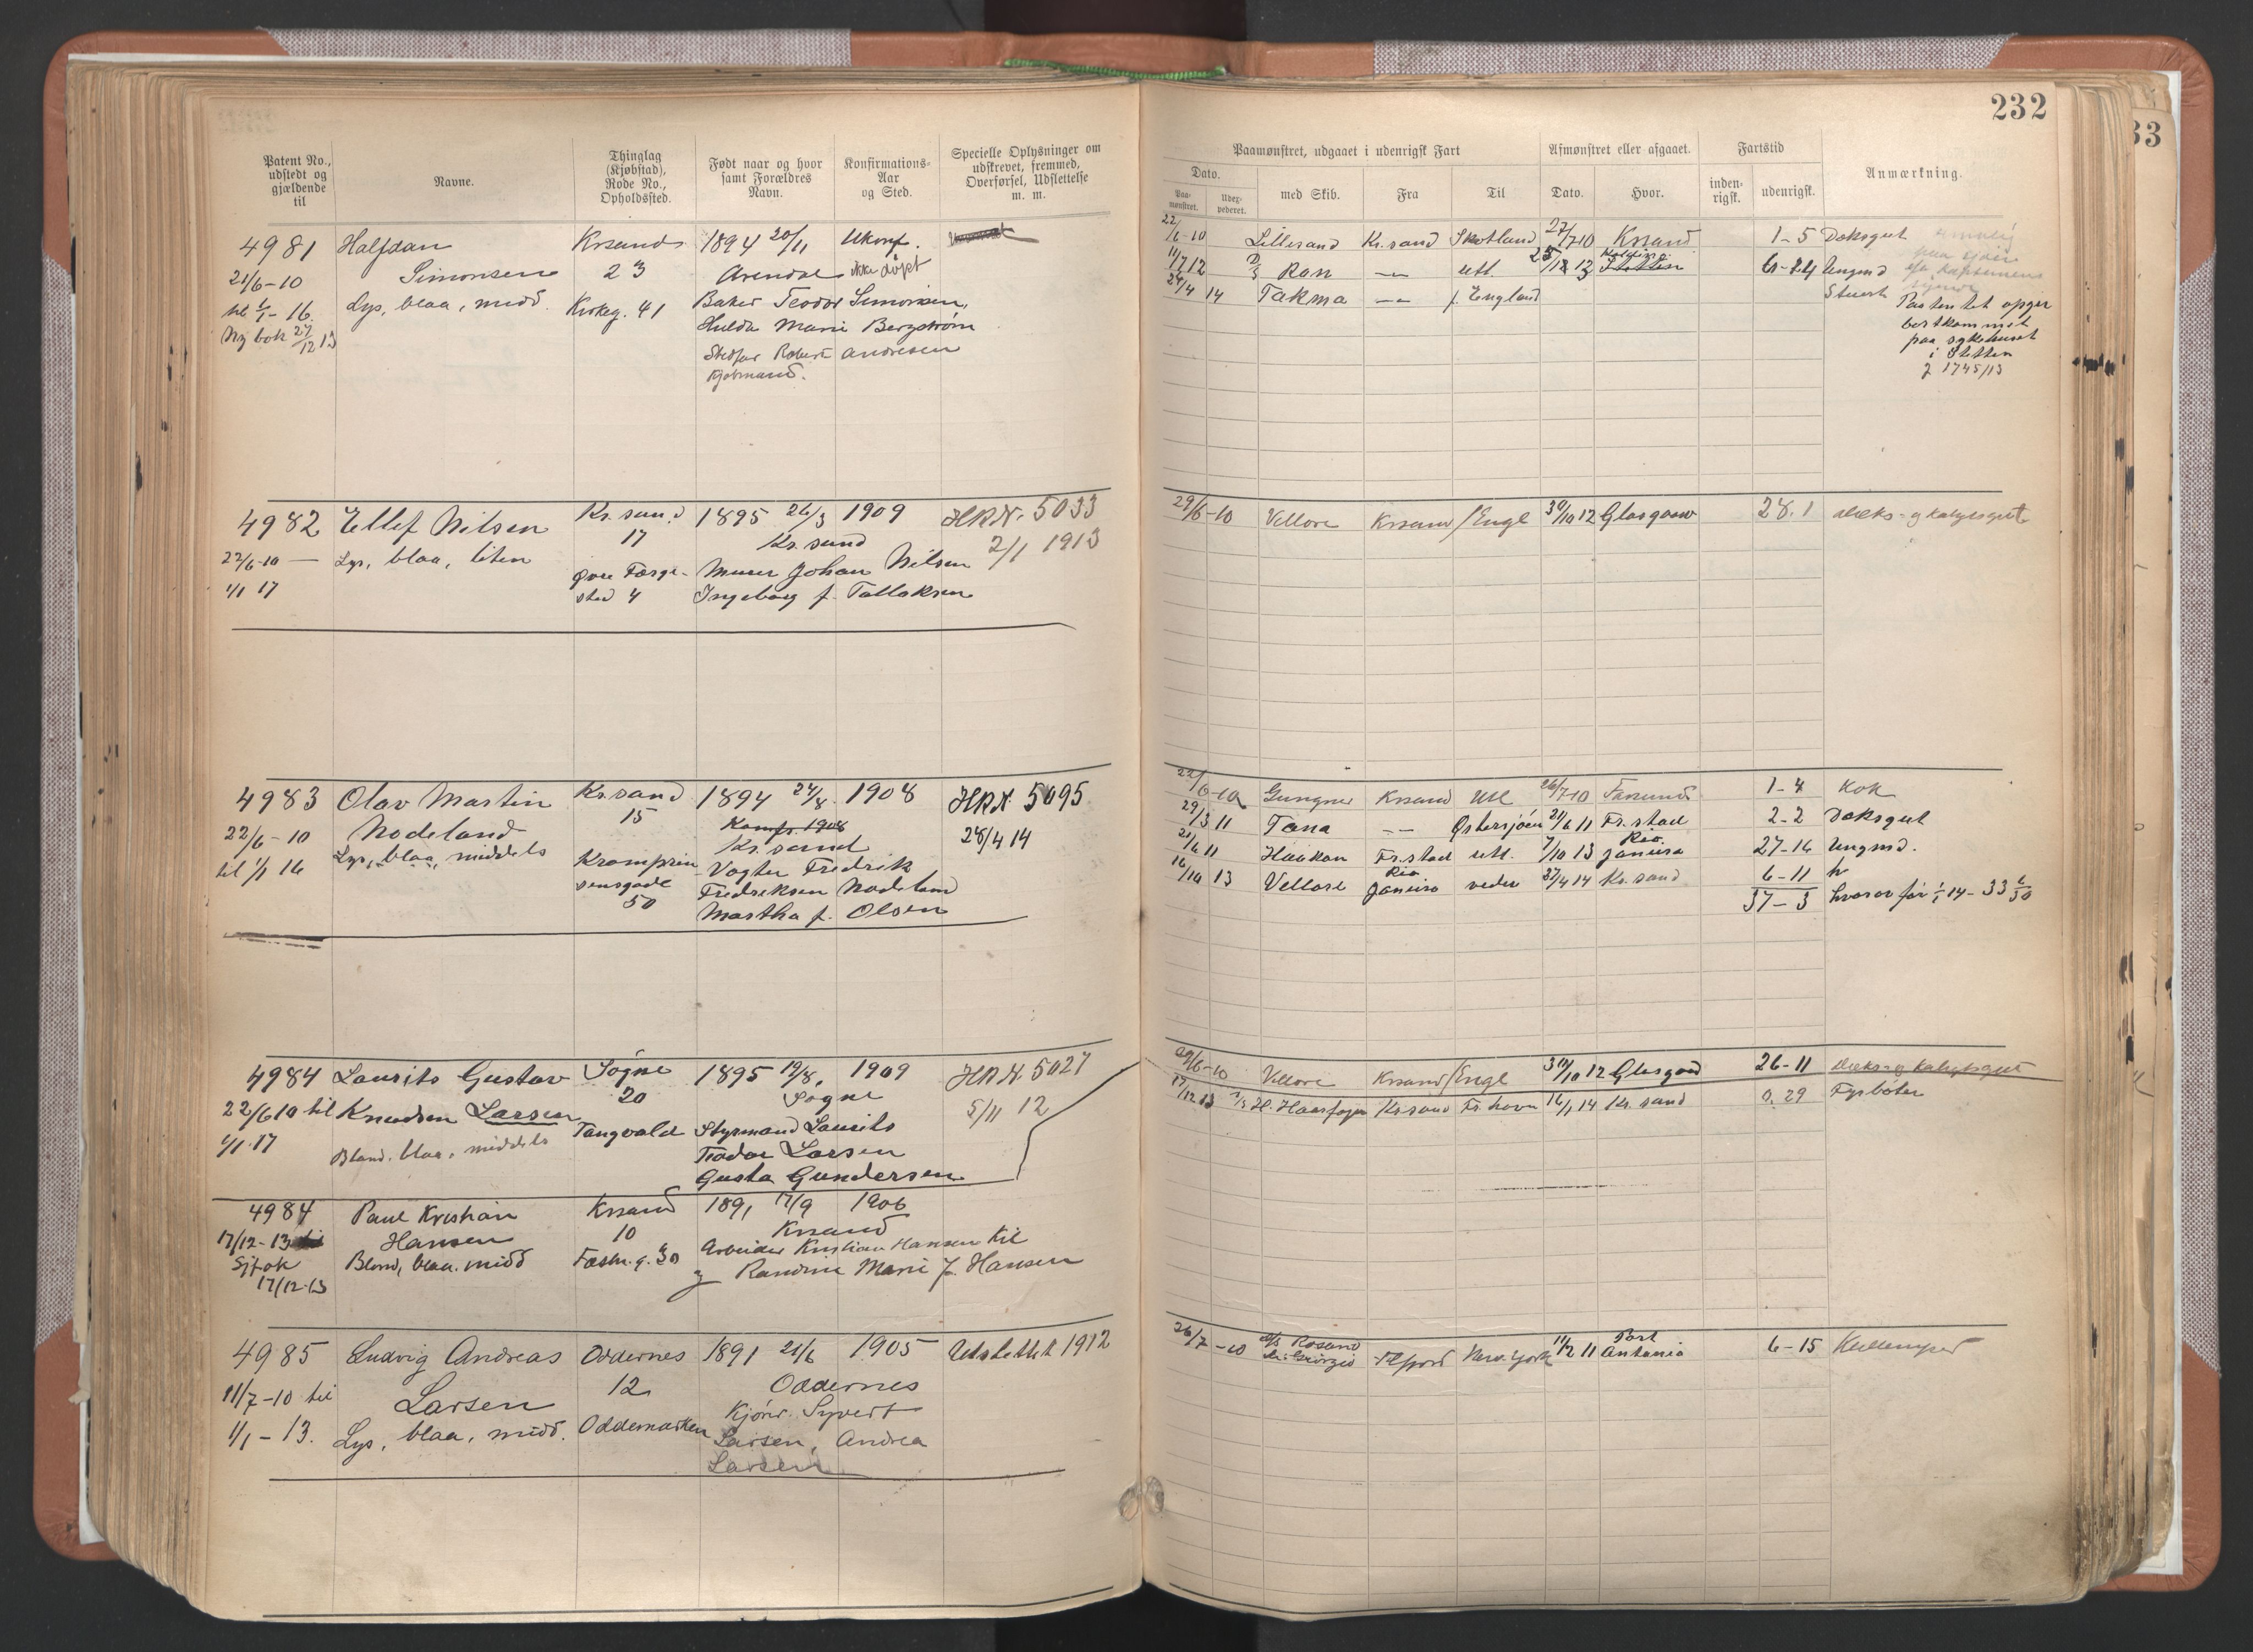 232
33
Patent No., udstedt og gjældende til
Navne.
Thinglag (Kjøbstad), Rode No., Opholdssted.
Født naar og hvor samt Forældres Navn.
Konfirmations-Aar og Sted.
Specielle Oplysninger om udskrevet, fremmed, Overførsel, Udslettelse m. m.
Paamønstret, udgaaet i udenrigsk Fart
Afmønstret eller afgaaet.
Fartstid
Anmærkning.
Dato.
Paa-mønstret.
Udex-pederet.
med Skib.
Fra
Til
Dato.
Hvor.
inden-rigsk.
udenrigsk.
4981 Halfdan Krsand 1894 20/11 Ukonf.
21/6-10 Simonsen 23 Arendal ikke døpt
til 1/1-16. Lys, blaa, midd. Kirkeg. 41 Baker Teodor Simonsen,
Ny bok 27/12 13 Hulda Marie Bergstrøm
Stedfar Robert Andresen
Kjøbmand.
22/6-10 Lillesand Kr.sand Skotland 27/7 10 Krsand 1-5 Dæksgut
11/7 12 D/S Ran —"— utl. Stettin 6-24 Ungmd
24/4 14 Takma —"— f. England Stuert
Patentet opgir
bortkommet
paa sykehuset
i Stettin
J 1745/13
4982 Ellef Nilsen Kr.sand 1895 26/3 1909 HRN. 5033
22/6-10 — Lys, blaa, liten 17 Kr.sand 2/1 1913
1/1 17 Øvre Færge- Murer Johan Nilsen
sted 4 Ingeborg f. Tallaksen
29/6-10 Vellore Krsand /Engl 30/10 12 Glasgow 28.1 Dæks- og kahytsgut
4983 Olav Martin Kr.sand 1894 24/8. 1908 HRN 5095
22/6-10 Nodeland 15 Konfr. 1908 28/4 14
til 1/1 16 Lys, blaa, middels Kr.sand
Kronprin- Vogter Fredrik
sensgade Fredriksen Nodeland
50 Martha f. Olsen
22/6-10 Gungner Krsand Utl 26/7-10 Farsund 1-4 Kok
29/3 11 Tana —"— Østersjøen 21/6 11 Fr.stad 2-2 Dæksgut
21/6 11 Haakon Fr.stad utl. 7/10 13 Rio Janeiro 27-16 Ungmd.
16/10 13 Vellore Rio Janeiro veder 27/4 14 Kr.sand 6-11 h
37-3 hvorav før 1/1 14-33
4984 Laurits Gustav Søgne 1895 19/8. 1909 HRN. 5027
22/6 10 til Knudsen Larsen 20 Søgne 5/11 12
1/1.17 Bland. blaa, middels Tangvald Styrmand Laurits
Teodor Larsen
Gusta Gundersen
29/6-10 Vellore Krsand/Engl 30/10 12 Glasgow 26-11 Dæks- og kahytsgut
17/12 13 D/S H. Haarfager Kr.sand Fr.havn 16/1 14 Kr.sand 0.29 Fyrbøter
4984 Paul Kristian Krsand 1891 17/9 1906
17/12-13 Hansen 10 Krsand
Sjfok Blond, blaa. midd Fæstn.g. 30 Arbeider Kristian Hansen Kil
17/12-13 og Randine Marie f. Hansen
4985 Ludvig Andreas Oddernes 1891 21/6 1905 Utslettet 1912
11/7-10 til Larsen 12 Oddernes
1/1-13. Lys, blaa, midd. Oddemarken Kjører Syvert
Larsen, Andrea
Larsen
26/7-10 Rosano New-York 11/2 11 Port Antonio 6-15 Kullemper